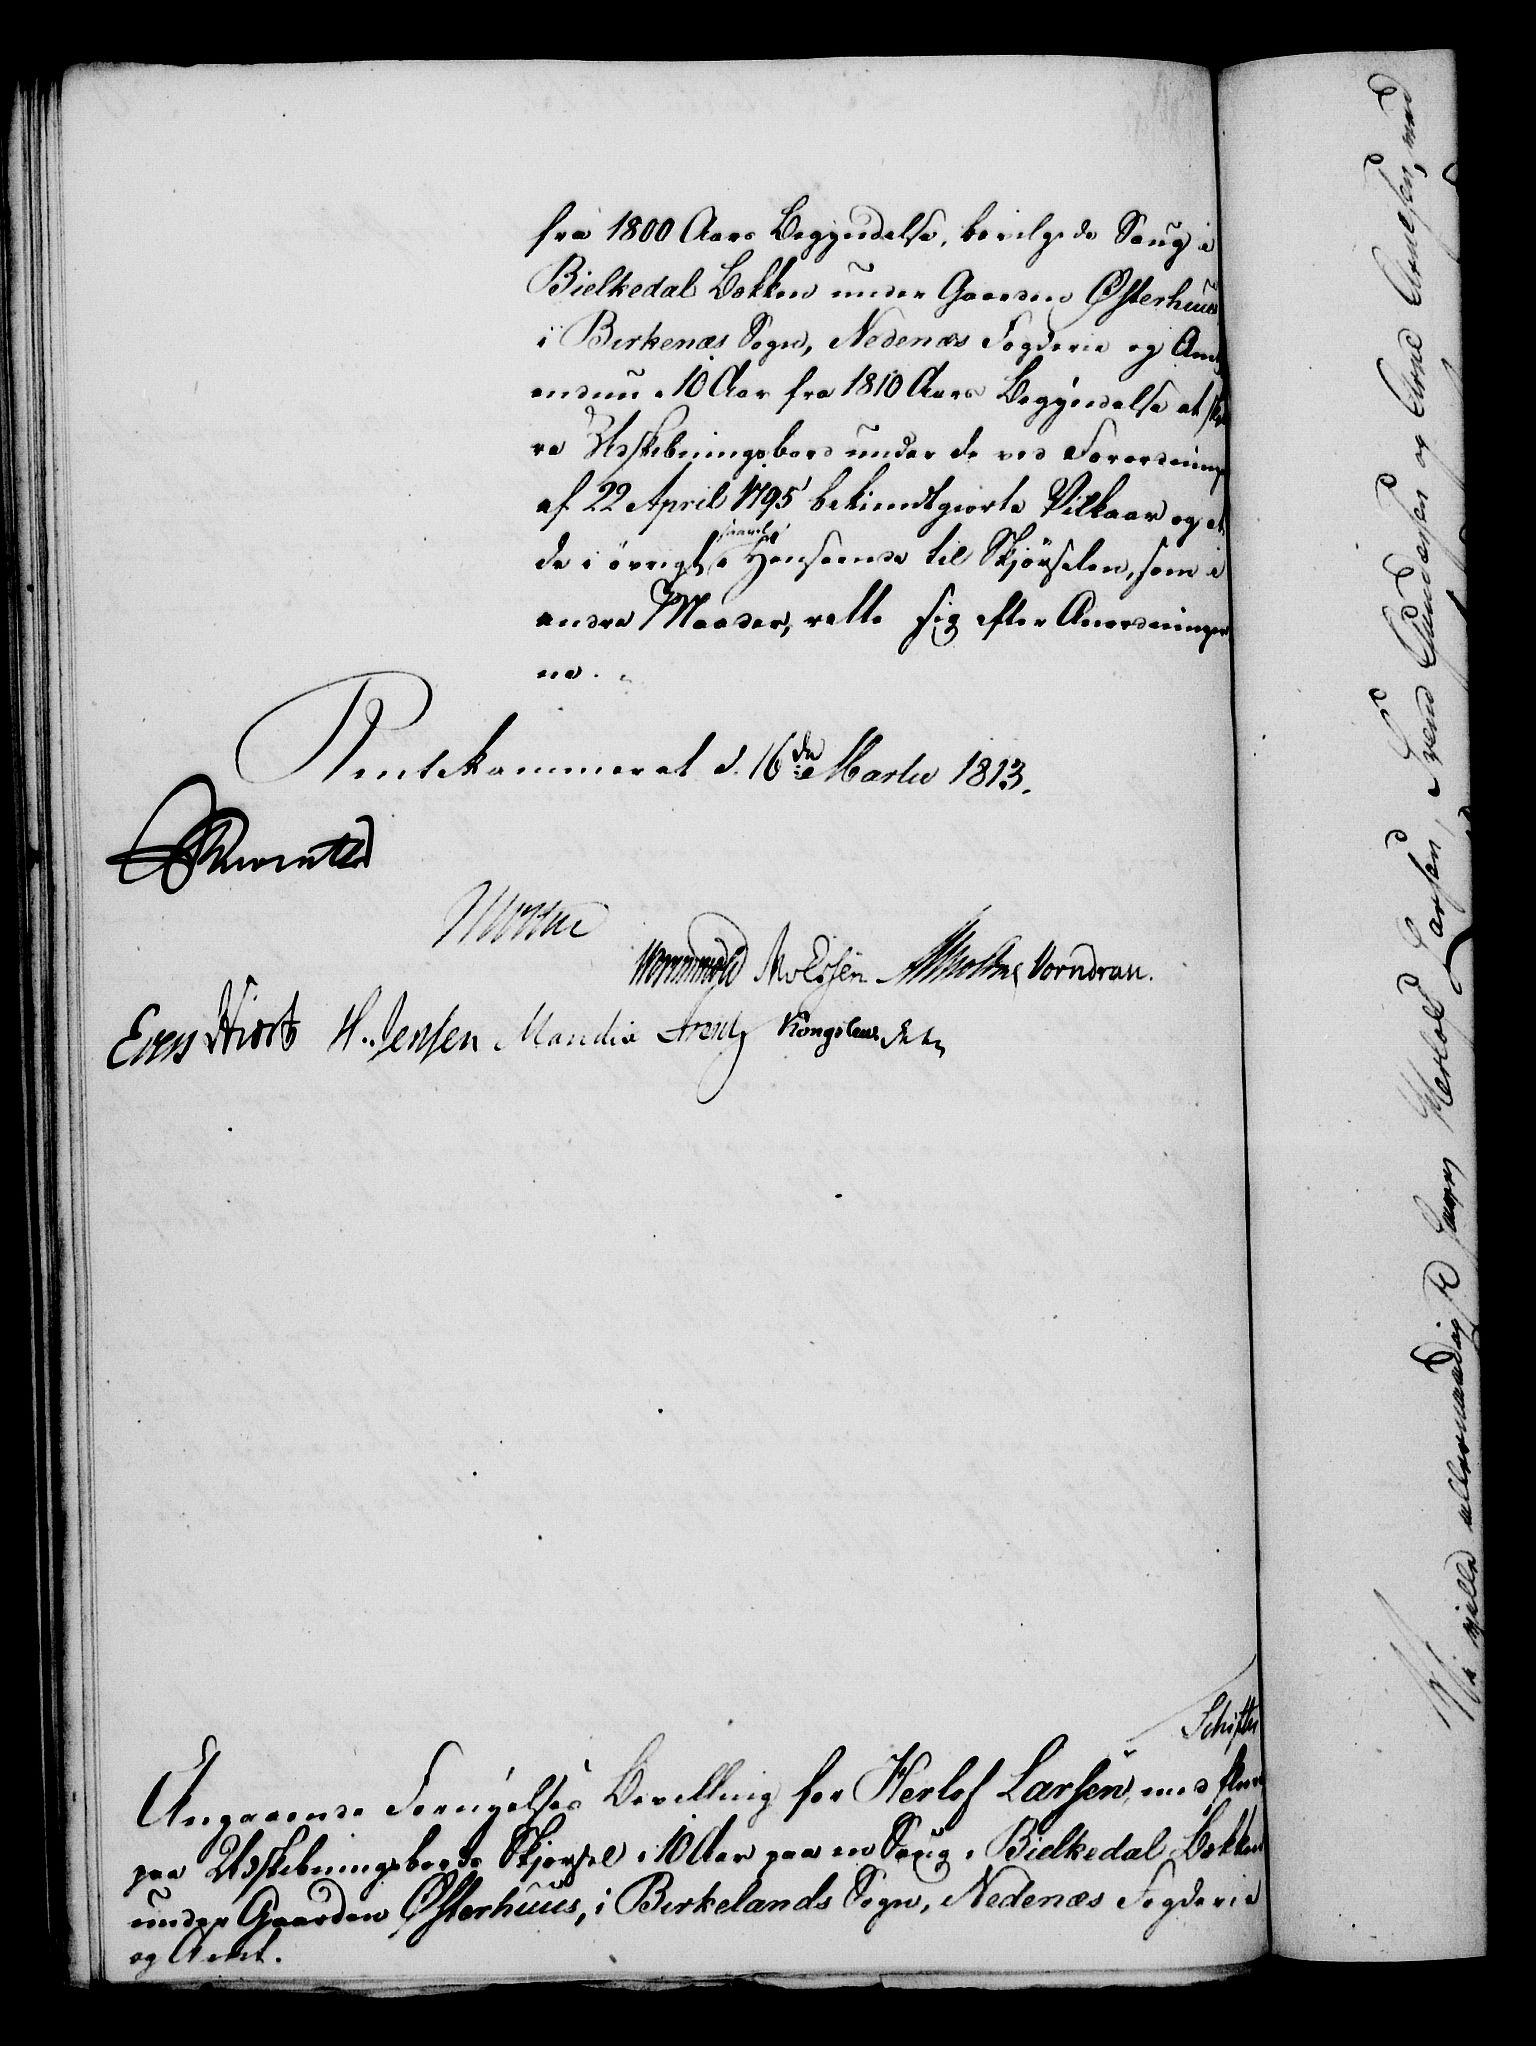 fra 1800 Aars Begyndelse, bevilgede Saug i
Bielkedal Bekken under Gaarden Østerhuus
i Birkenæs Sogn, Nedenæs Fogderie og Amt
endnu i 10 Aar fra 1810 Aars Begyndelse at skiæ
re Udskibningsbord under de ved Forordningen
af 22 April 1795 bekiendtgiorte Vilkaar og at
de i øvrigt saavel i Henseende til Skjørselen, som i
andre Maader, rette sig efter Anordninger
ne.
Rentekammeret d. 16de Martii 1813.
Reventlo
Wormskiold Vorndran.
Hiort H. Jensen Mandix
Schiøtte
Angaaende Fornyelses Bevilling for Herlof Larsen, med flere
paa Udskibningsbords Skjørsel i 10 Aar paa en Saug i Bielkedal Bekken
under Gaarden Østerhuus, i Birkelands Sogn, Nedenæs Fogderie
og Amt.
Vi ville allernaadigst have Herlof Larsen, Svend Gundersen og Arne Arnesen, med